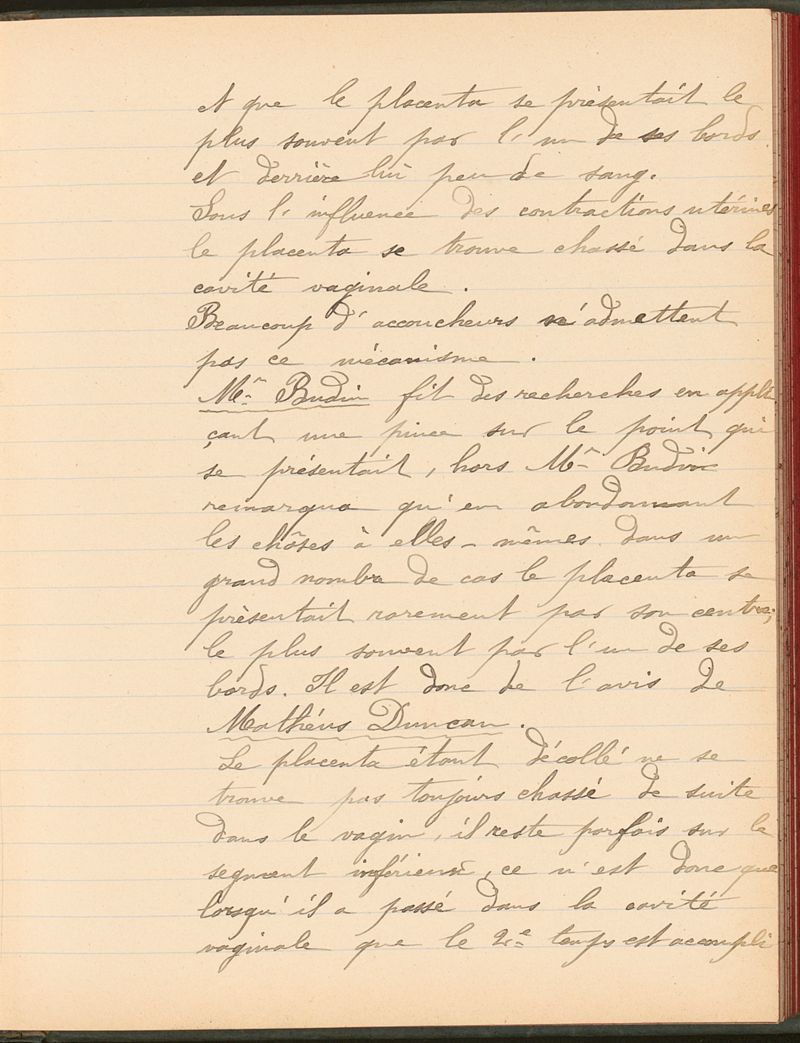 et que le placenta se présentait le
plus souvent par l'un de ses bords
et derrière lui peu de sang.
Sous l'influence des contractions utérines
le placenta se trouve chassé dans la
cavité vaginale.
Beaucoup d'accoucheurs n'admettent
pas ce mécanisme.
Mr Budin fit des recherches en appli
çant une pince sur le point qui
se présentait, hors Mr Budin
remarqua qu'en abandonnant
les chôses à elles-mêmes dans un
grand nombre de cas le placenta se
présentait rarement par son centre;
le plus souvent par l'un de ses
bords. Il est donc de l'avis de
Mathéus Duncan.
Le placenta étant décollé ne se
trouve pas toujours chassé de suite
dans le vagin, il reste parfois sur le
segment inférieur, ce n'est donc que
lorsqu'il a passé dans la cavité
vaginale que le 2e temps est accompli